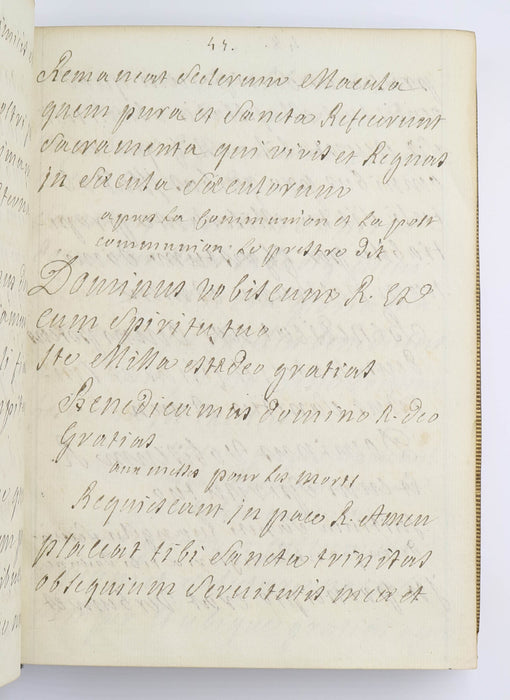 47.
Remaneat scelerum Macula
quem pura et Sancta Refecerunt
Sacramenta qui vivis et Regnas
in Sæcula Sæculorum
apres la Communion et la post
communion le prestre dit
Dominus vobiscum R. Et
cum spiritu tuo
Ite Missa est R deo gratias
Benedicamus domino R. deo
Gratias
aux messes pour les morts
Requiescant in pace R. Amen
placeat tibi Sancta trinitas
obsequium Servitutis meæ et